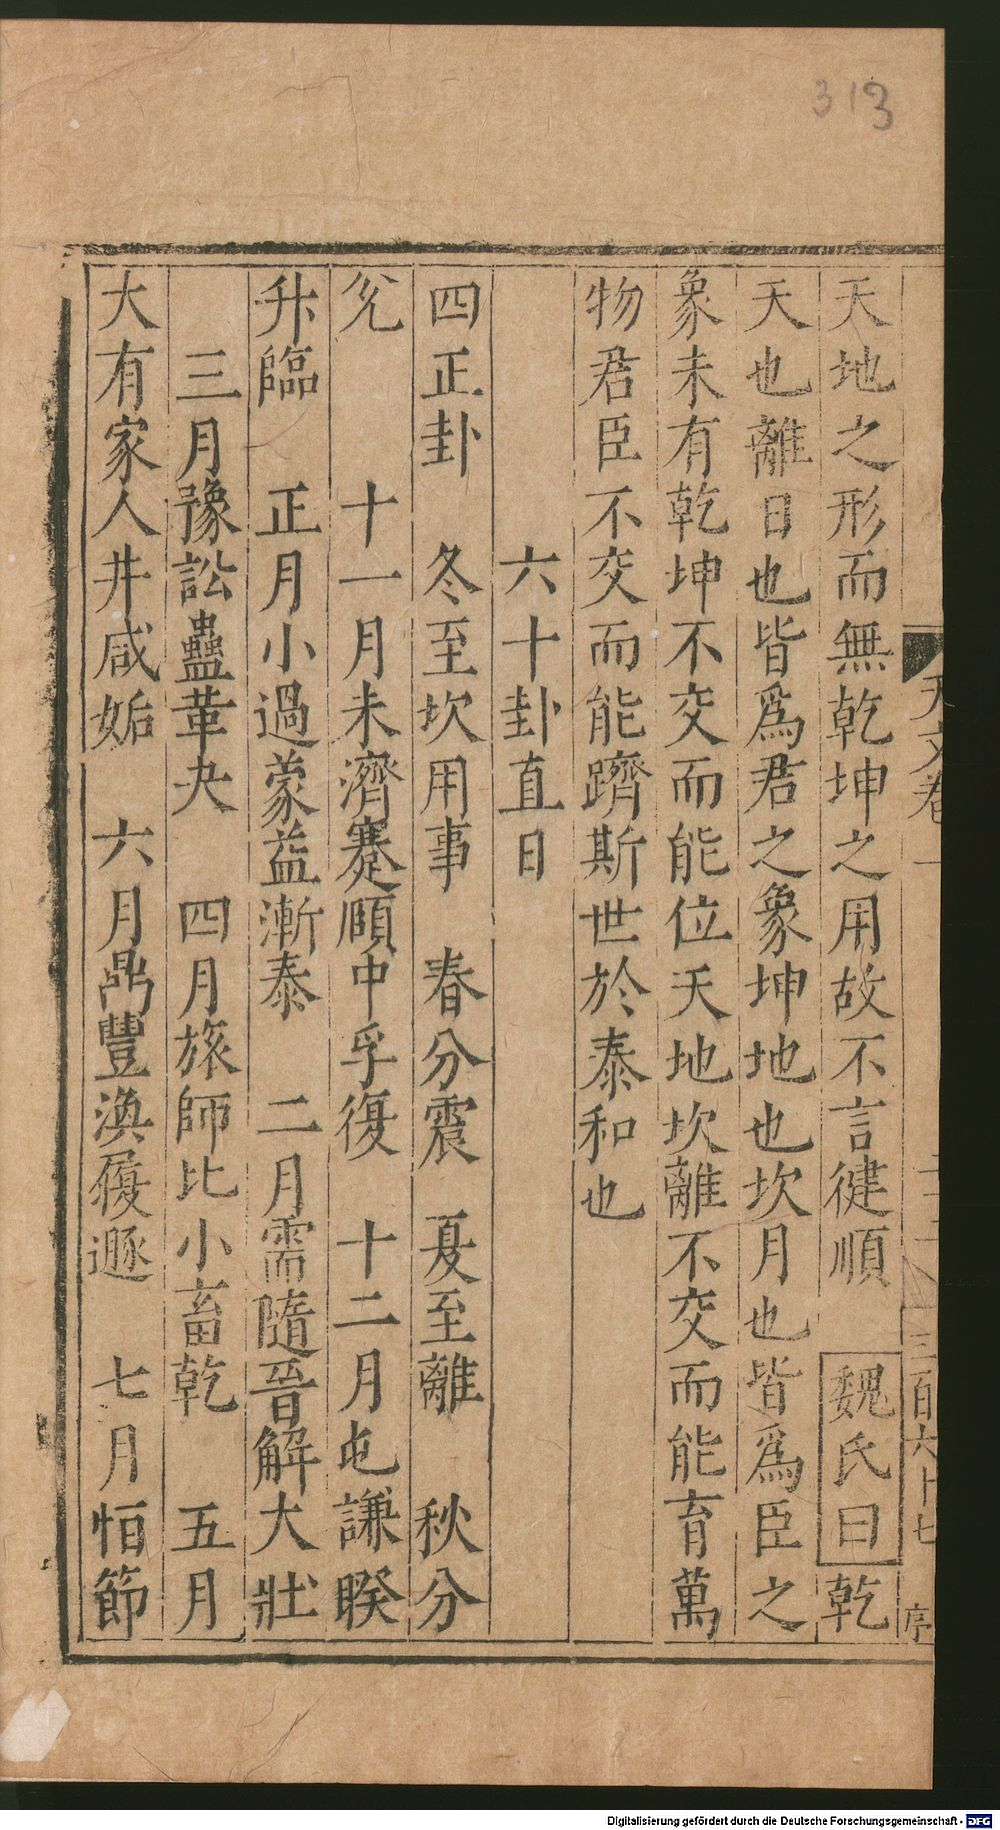 313
天文卷一
三百六十七
序
天地之形而無乾坤之用故不言健順　魏氏曰乾
天也離日也皆爲君之象坤地也坎月也皆爲臣之
象未有乾坤不交而能位天地坎離不交而能育萬
物君臣不交而能躋斯世於泰和也
六十卦直日
四正卦　冬至坎用事　春分震　夏至離　秋分
兌　十一月未濟蹇頤中孚復　十二月屯謙睽
升臨　正月小過蒙益漸泰　二月需隨晉解大壯
三月豫訟蠱革夬　四月旅師比小畜乾　五月
大有家人井咸姤　六月鼎豐渙履遯　七月恒節
Digitalisierung gefördert durch die Deutsche Forschungsgemeinschaft - DFG